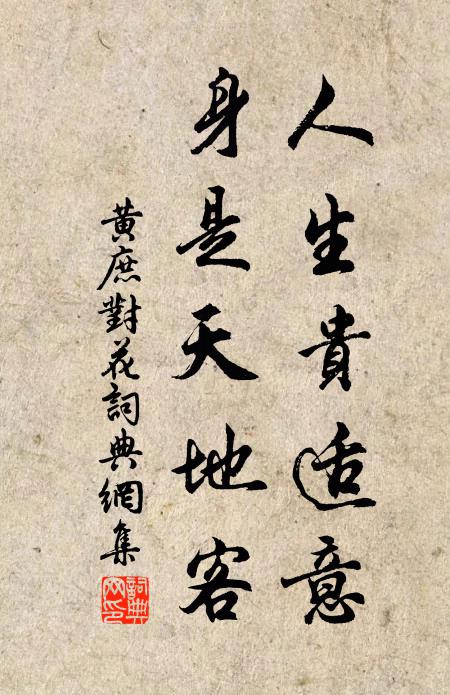 人生貴适意
身是天地客
黄庶對花詞典網集
詞典網印